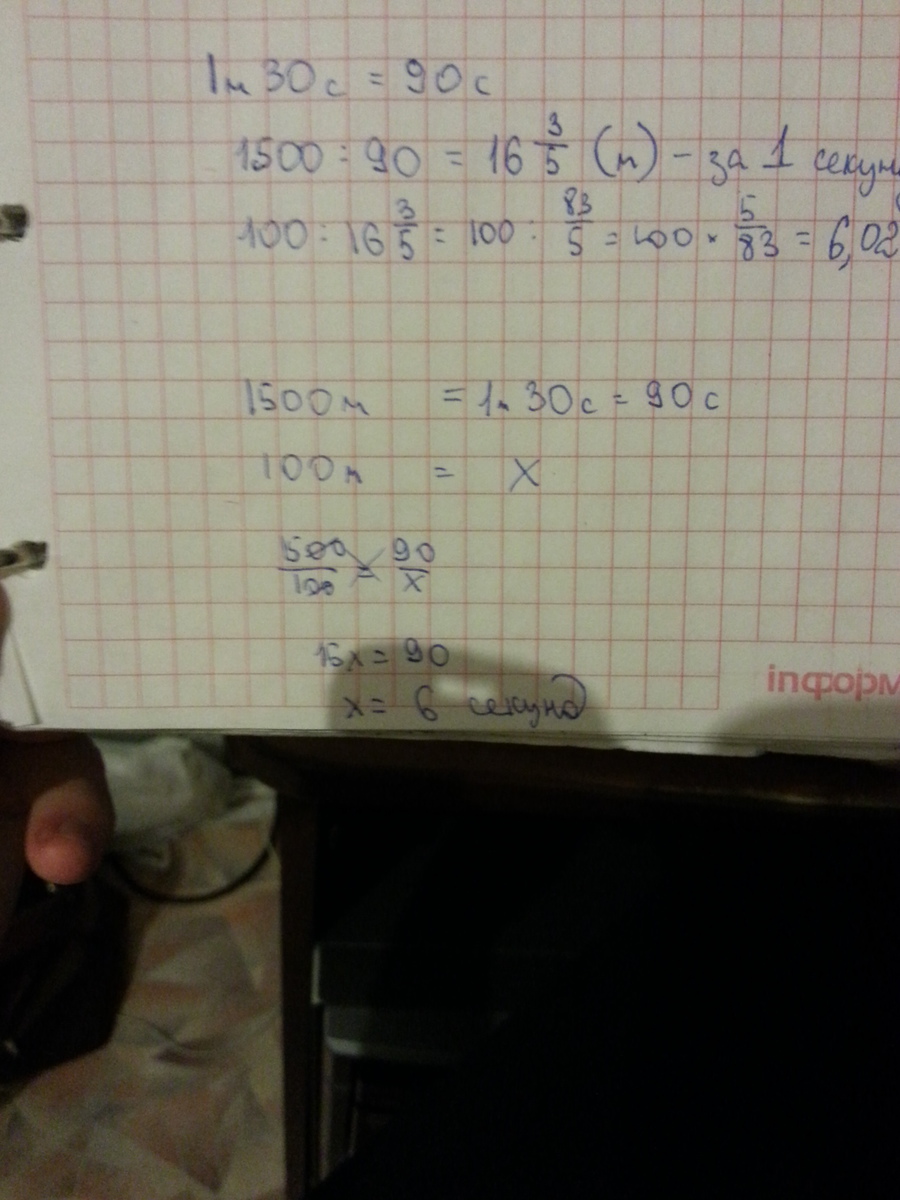 1м 30с = 90с
1500 : 90 = 16 3/5 (м) - за 1 секун
100 : 16 3/5 = 100 : 83/5 = 100 * 5/83 = 6,02
1500м = 1м 30с = 90с
100м = х
1500/100 = 90/х
15х = 90
х = 6 секунд
інформ